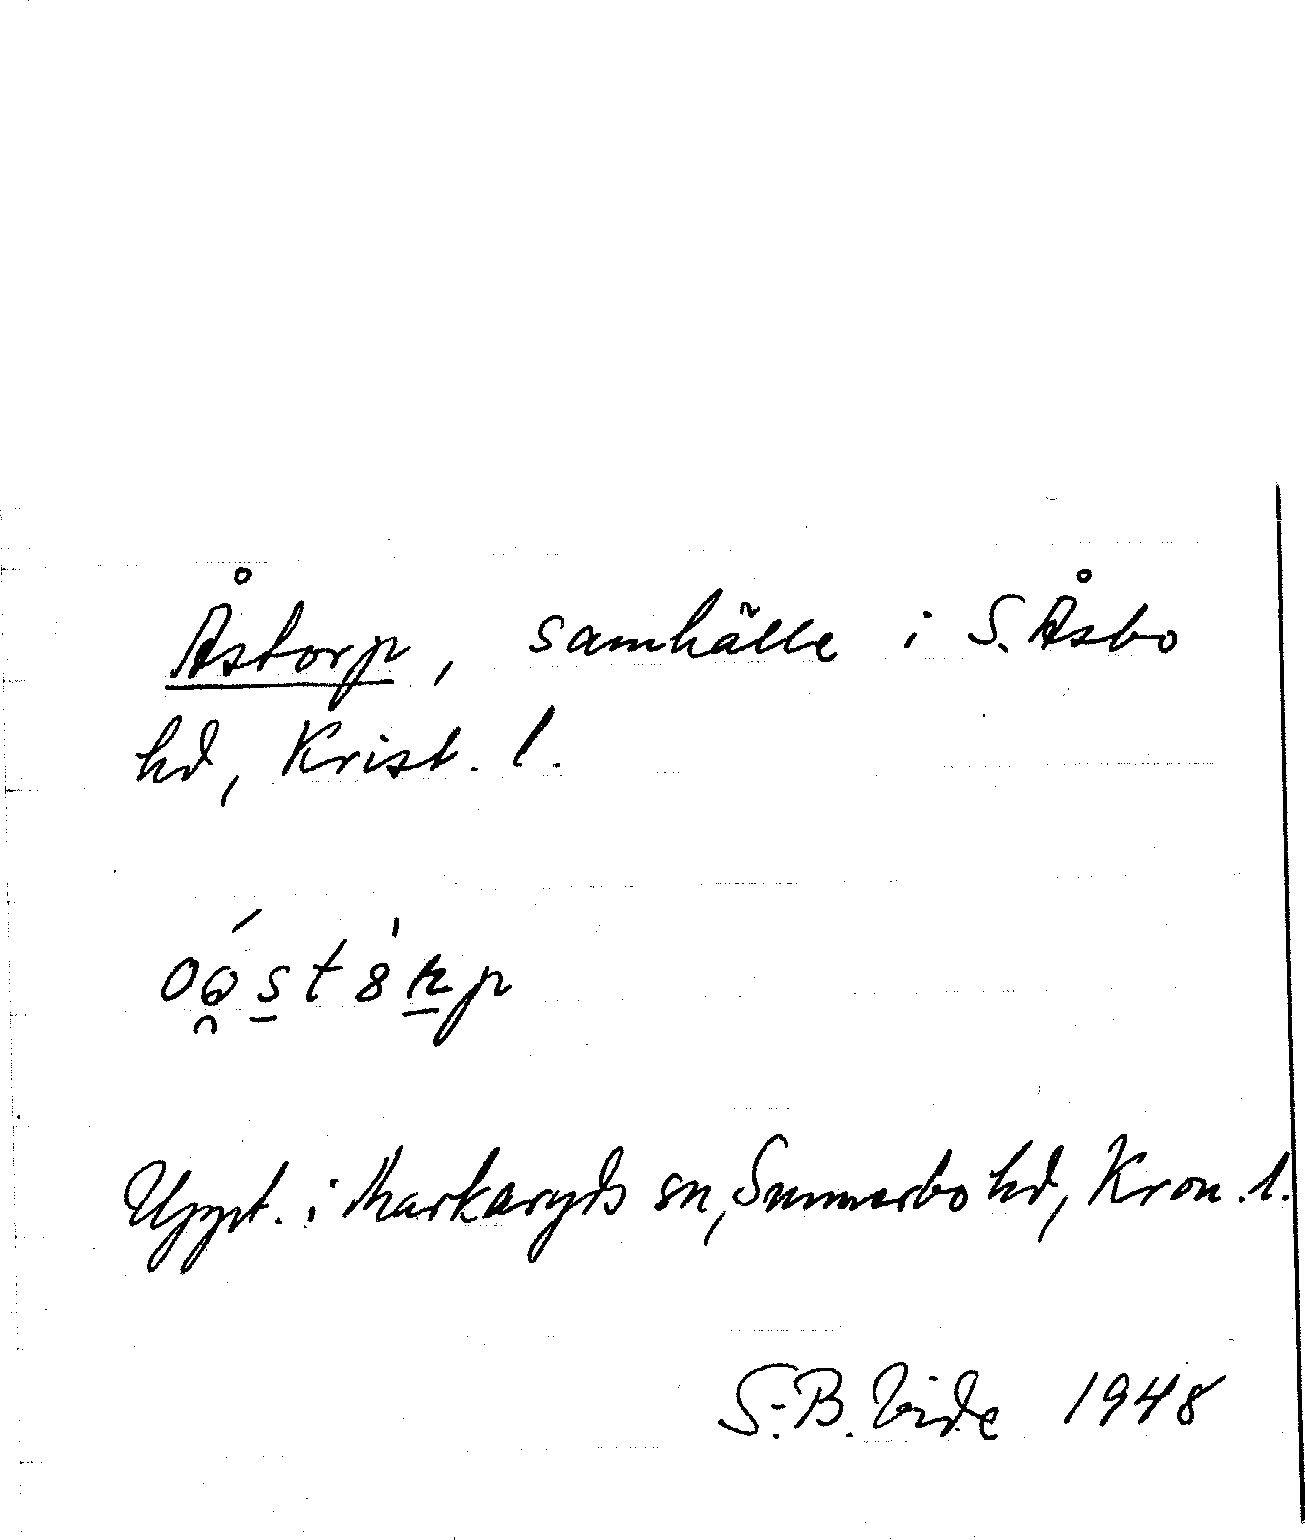 Åstorp, samhälle i S. Åsbo
hd, Krist. l.
Uppt. i Markaryds sn, Sunnerbo hd, Kron. l.
S.-B. Vide 1948